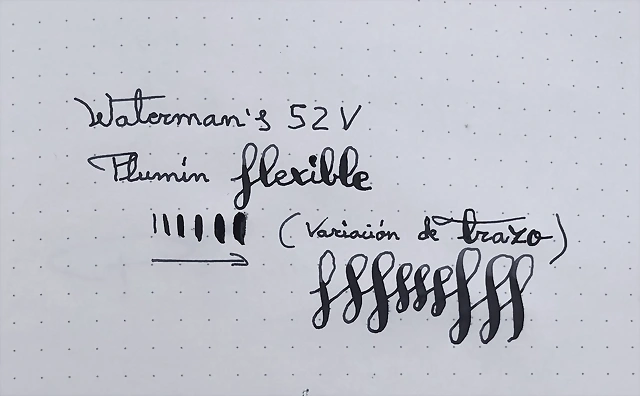 Waterman's 52 V
Plumín flexible
(Variación de trazo)